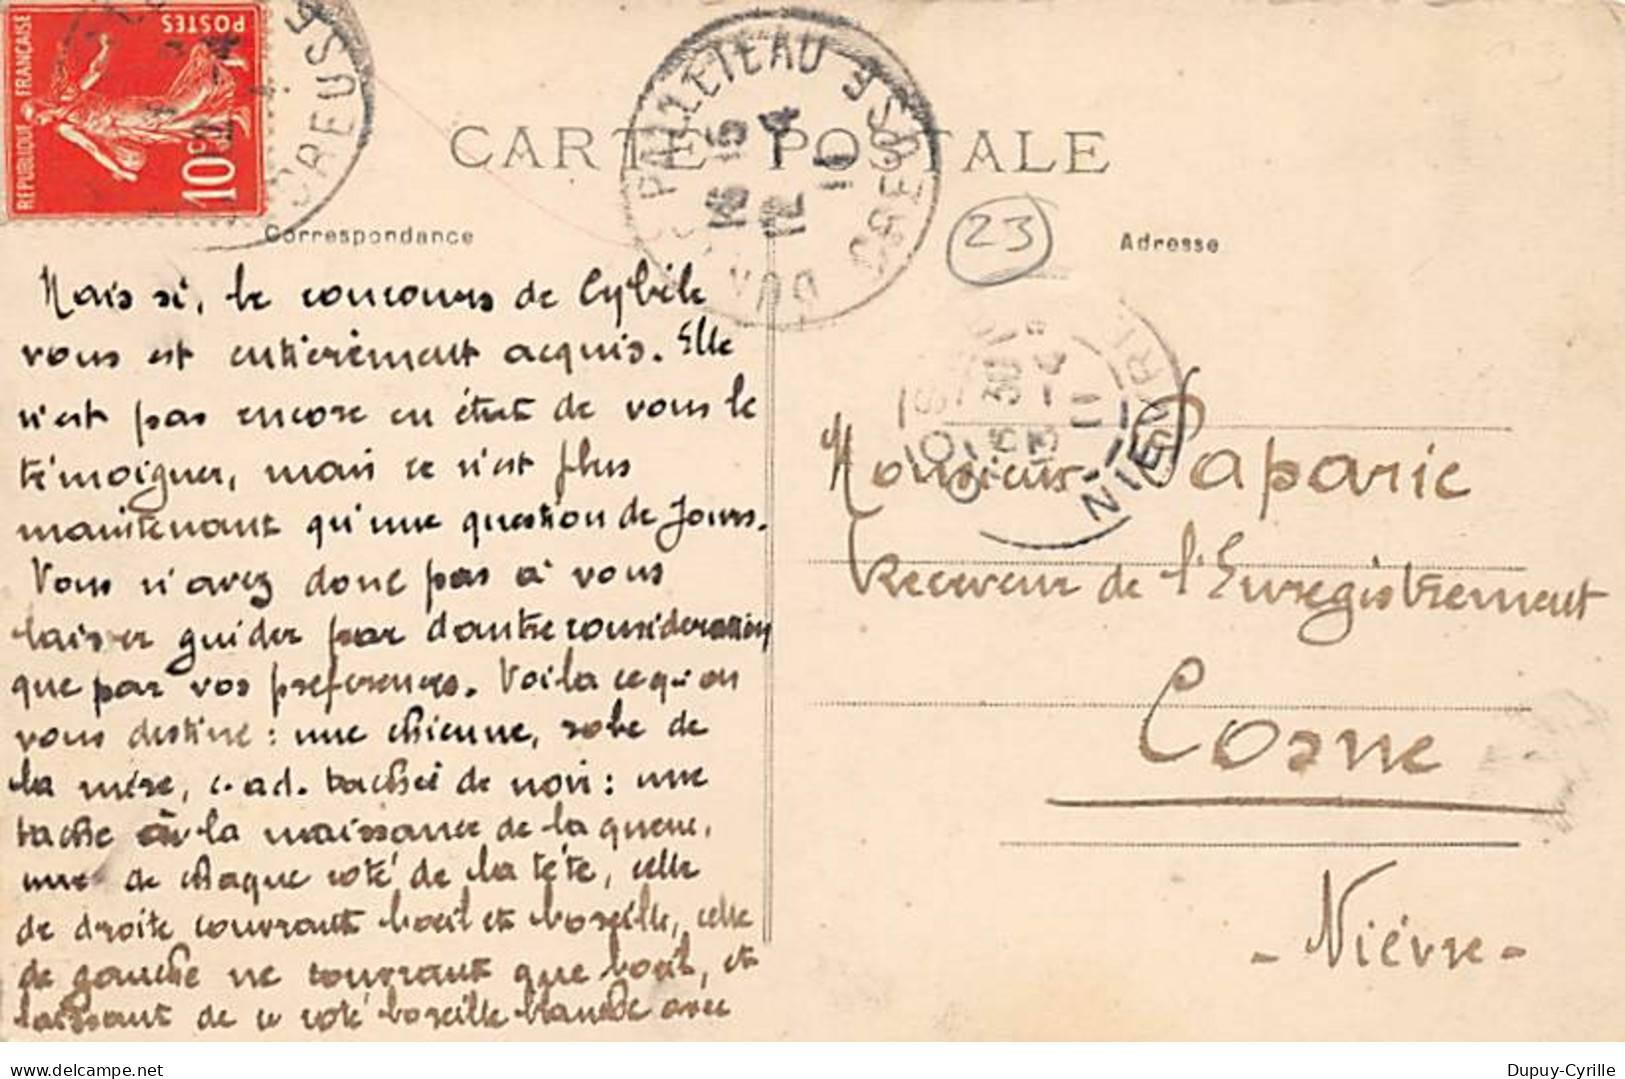 REPUBLIQUE FRANÇAISE
POSTES
10c
CREUSE
DUN-LE-PALLETEAU
CREUSE
16 15
12 4
11
CARTE POSTALE
23
Correspondance
Adresse
Mais si, le concours de Cybèle
vous est entièrement acquis. Elle
n'est pas encore en état de vous le
témoigner, mais ce n'est plus
maintenant qu'une question de jours.
Vous n'avez donc pas à vous
laisser guider par d'autre considération
que par vos préférences. Voilà ce qu'on
vous destine : une chienne, robe de
la mère, c.ad. tachée de noir : une
tache à la naissance de la queue,
une de chaque côté de la tête, celle
de droite couvrant l'oeil et l'oreille, celle
de gauche ne couvrant que l'oeil, et
laissant de ce côté l'oreille blanche avec
NIEVRE
Monsieur Paparic
Receveur de l'Enregistrement
Cosne
- Nièvre -
www.delcampe.net
Dupuy-Cyrille